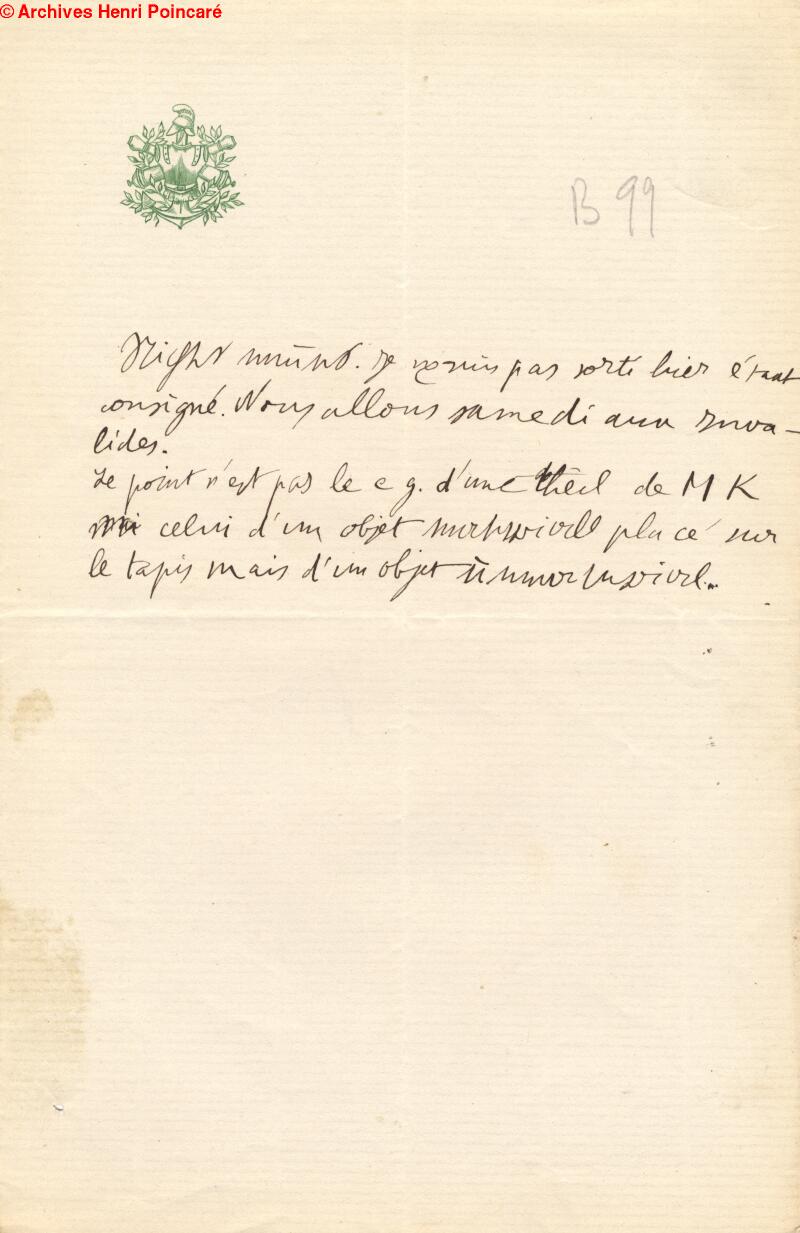 © Archives Henri Poincaré
B 99
Night Je suis pas sorti hier étant
consigné. Nous allons samedi aux Inva-
lides.
Le point n'est pas le c g. d'une de M K
ni celui d'un objet placé sur
le tapis mais d'un objet